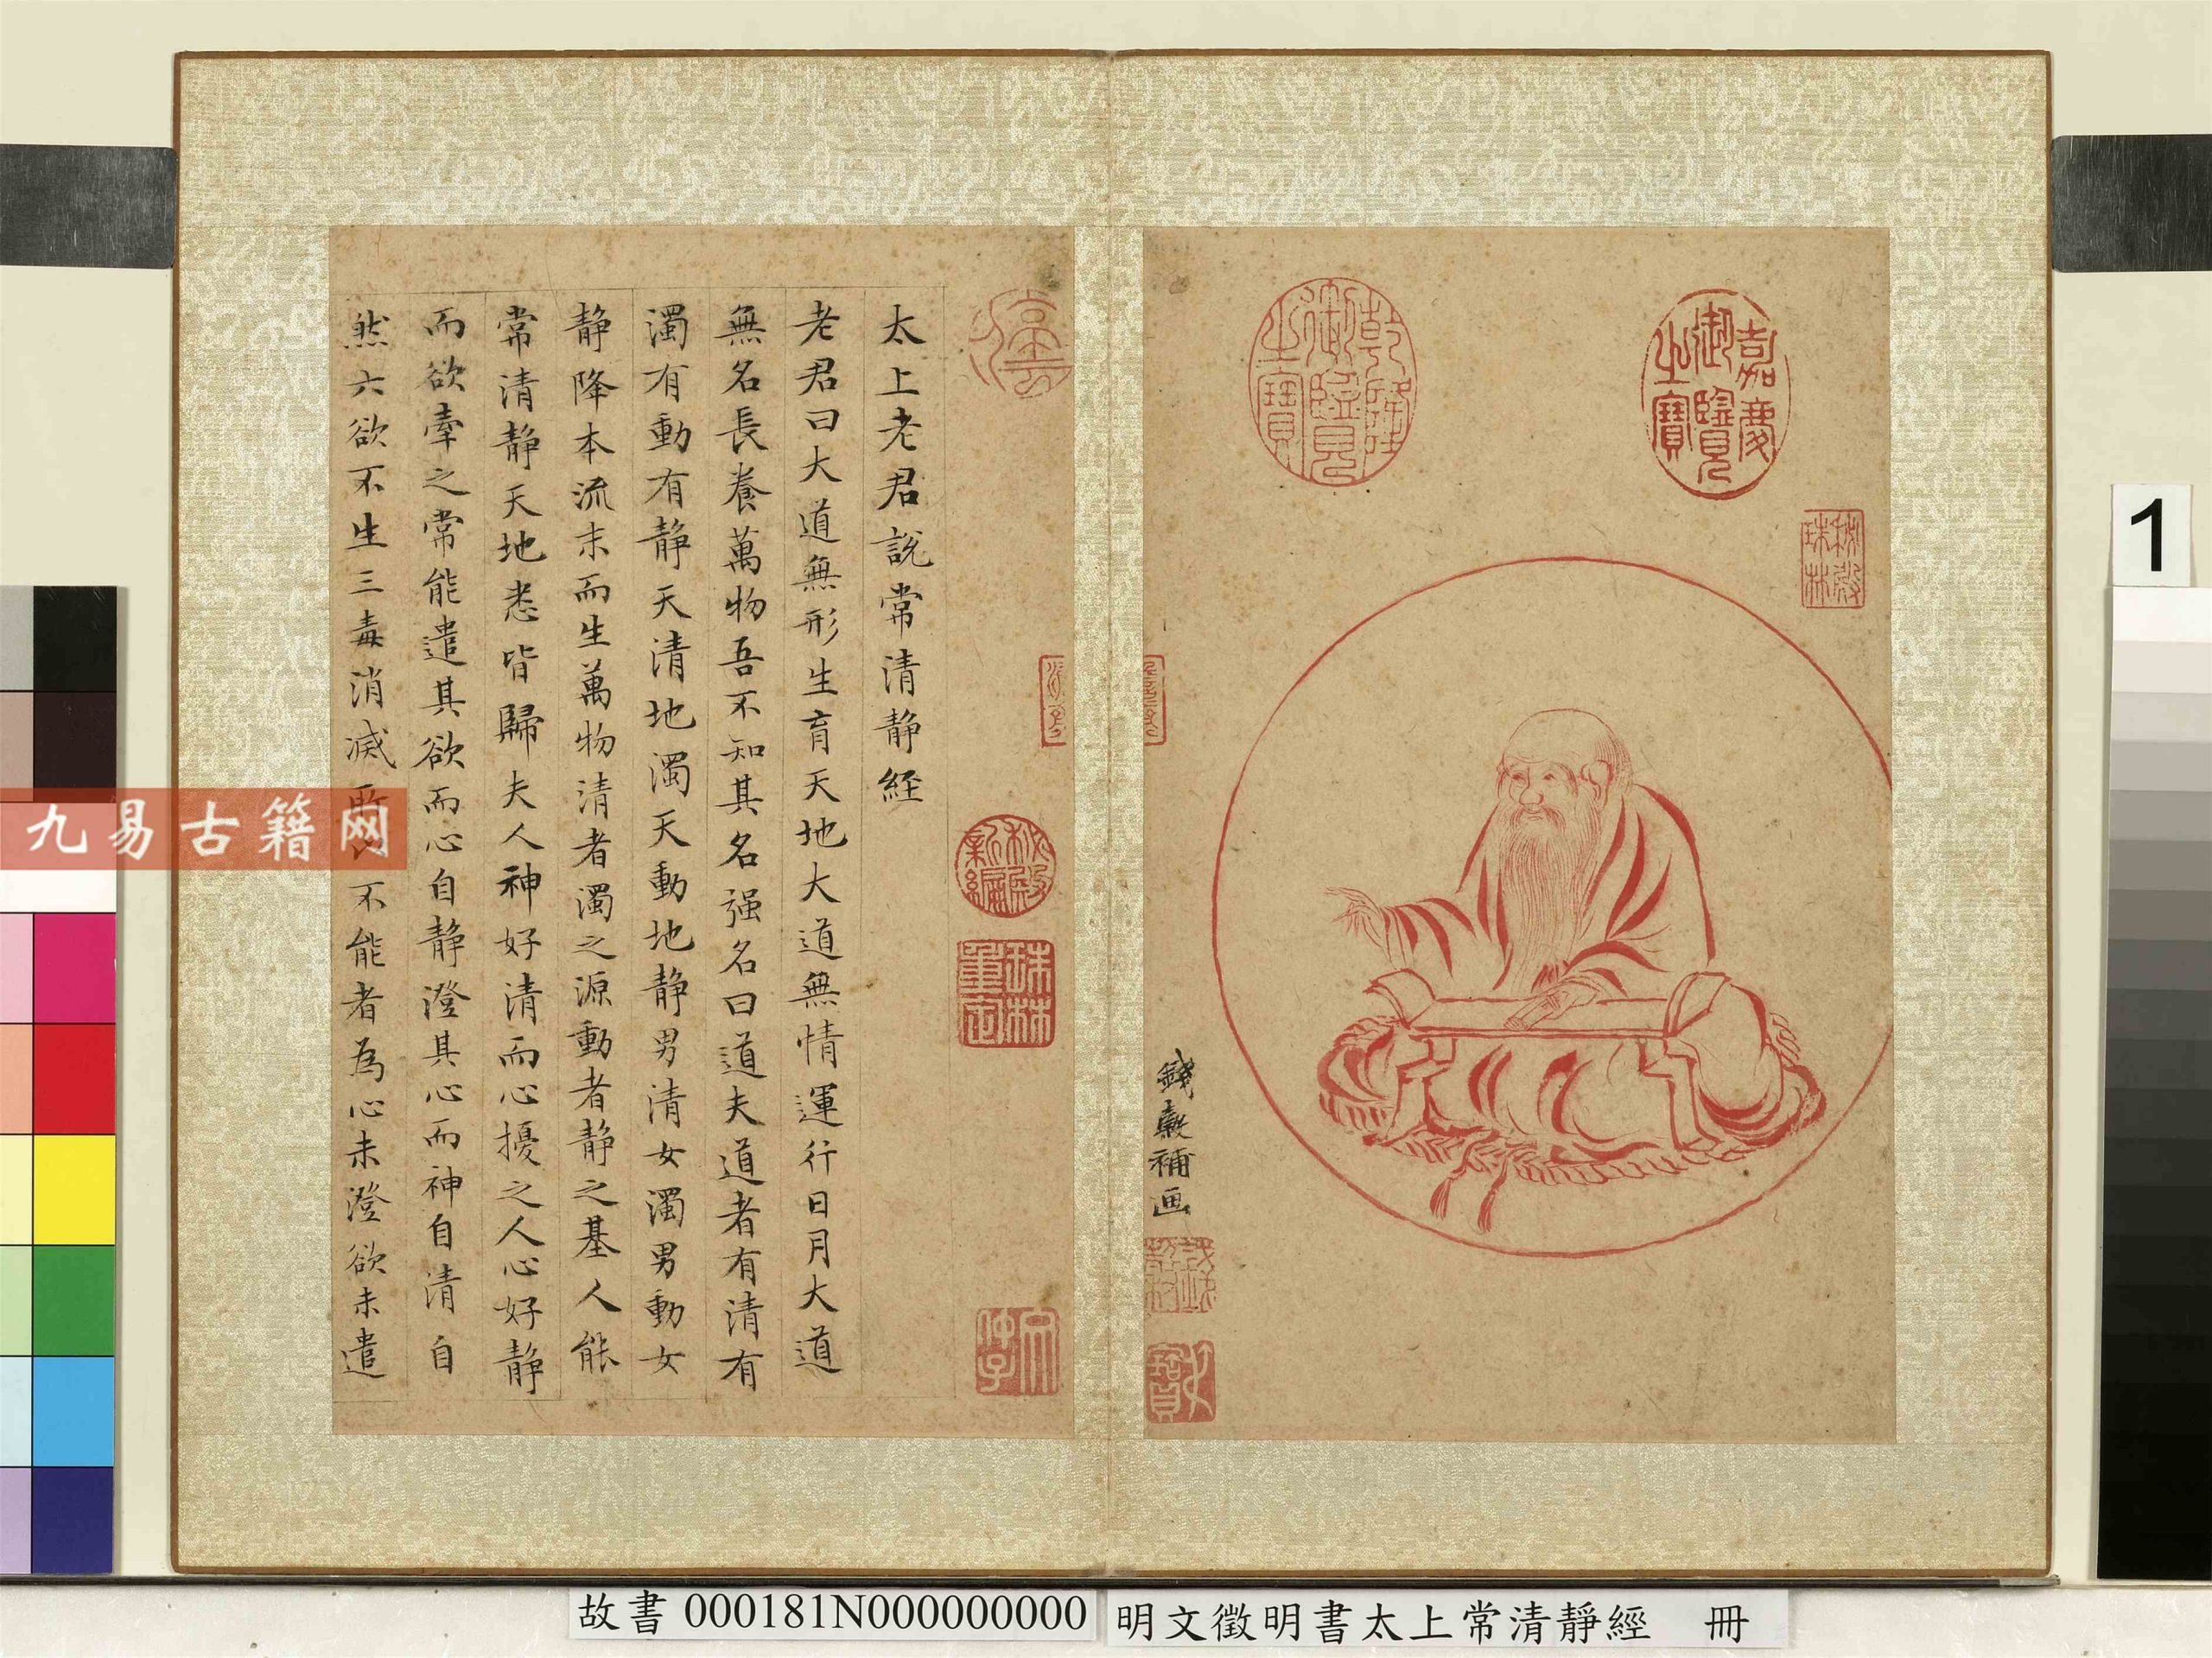 太上老君說常清静経
老君曰大道無形生育天地大道無情運行日月大道
無名長養萬物吾不知其名强名曰道夫道者有清有
濁有動有静天清地濁天動地静男清女濁男動女
静降本流末而生萬物清者濁之源動者静之基人能
常清静天地悉皆歸夫人神好清而心擾之人心好静
而欲牽之常能遣其欲而心自静澄其心而神自清自
然六欲不生三毒消滅所以不能者為心未澄欲未遣
乾隆御覽之寶
嘉慶御覽之寶
秘殿珠林
秘殿新編
珠林重定
錢穀補画
九易古籍网
1
故書 000181N000000000
明文徵明書太上常清靜經 冊